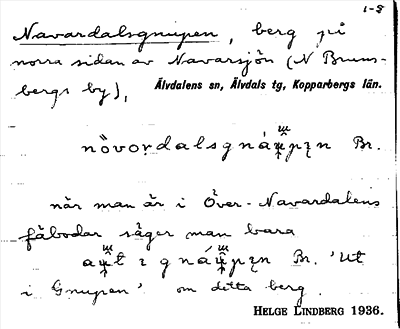 1-8
Navardalsgnupen, berg på
norra sidan av Navarsjön (N Bruns-
bergs by),
Älvdalens sn, Älvdals tg, Kopparbergs län.
Br.
när man är i Över-Navardalens
fäbodar säger man bara
Br. 'Ut
i Gnupen' om detta berg.
HELGE LINDBERG 1936.